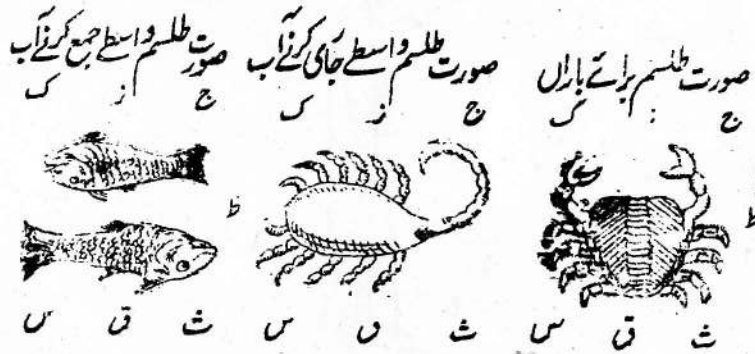 صورت طلسم برائے باراں
ج ز ک
ظ
ث ق س
صورت طلسم واسطے جاری کرنے آب
ج ز ک
ظ
ث ق س
صورت طلسم واسطے جمع کرنے آب
ج ز ک
ث ق س